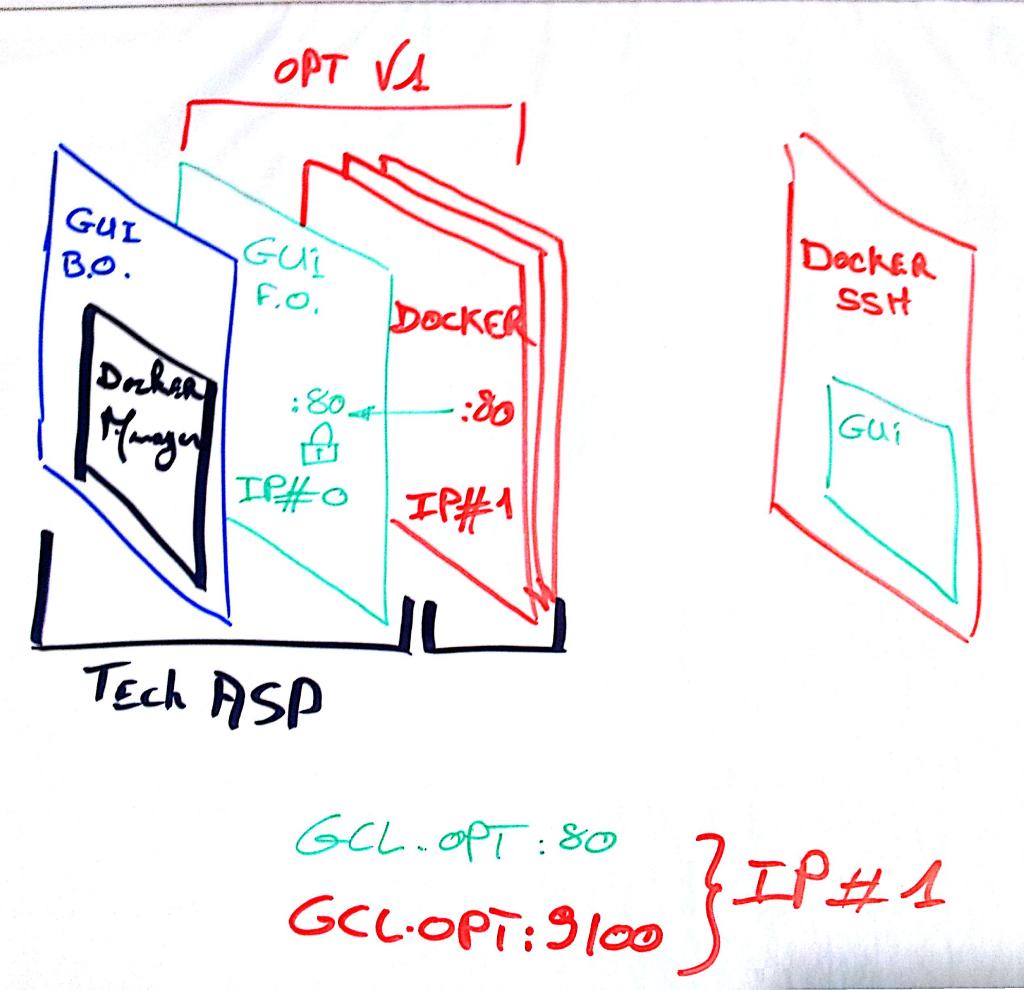 OPT V1
GUI
B.O.
Docker
Manager
GUi
F.O.
:80
IP#0
DOCKER
:80
IP#1
DOCKER
SSH
GUi
Tech ASP
GCL.OPT:80
GCL.OPT:9100
IP#1